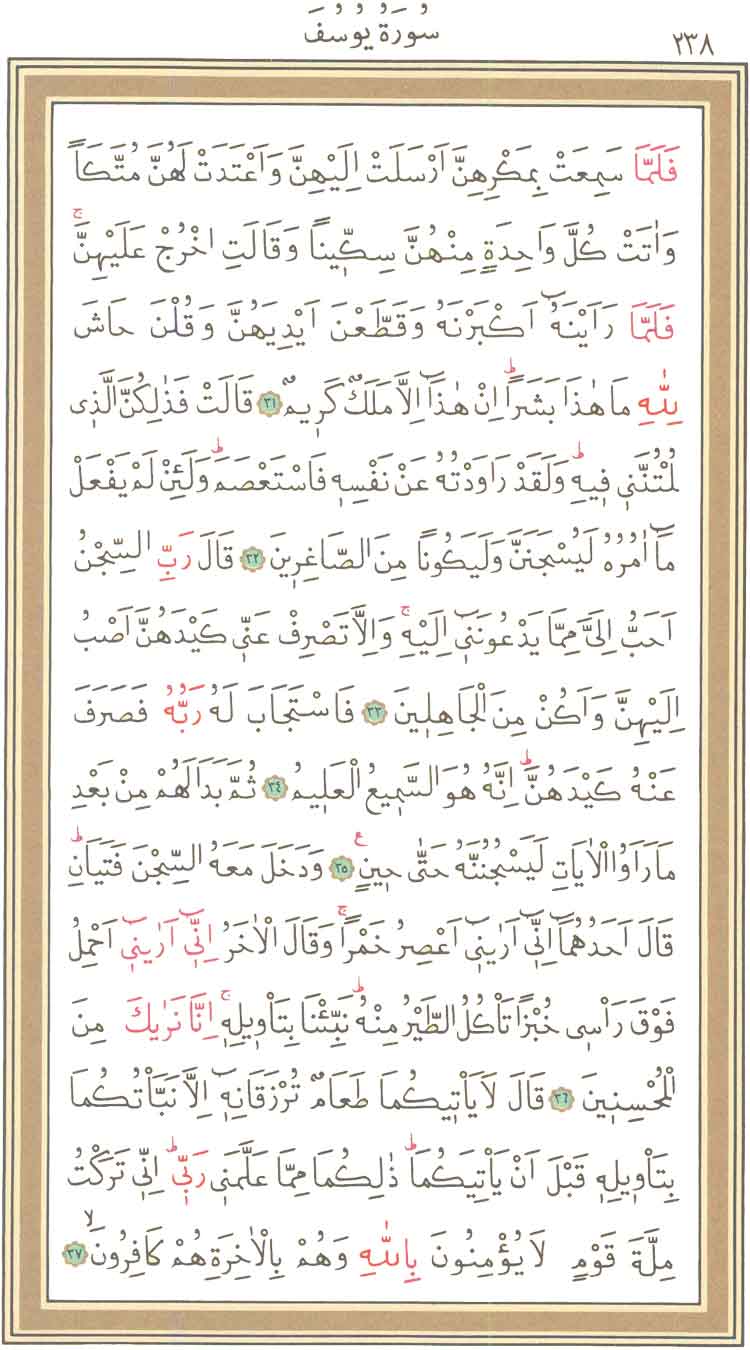 سُورَةُ يُوسُفَ
٢٣٨
فَلَمَّا سَمِعَتْ بِمَكْرِهِنَّ اَرْسَلَتْ اِلَيْهِنَّ وَاَعْتَدَتْ لَهُنَّ مُتَّكَـًٔا
وَاٰتَتْ كُلَّ وَاحِدَةٍ مِنْهُنَّ سِكّ۪ينًا وَقَالَتِ اخْرُجْ عَلَيْهِنَّۚ
فَلَمَّا رَاَيْنَهُٓ اَكْبَرْنَهُ وَقَطَّعْنَ اَيْدِيَهُنَّ وَقُلْنَ حَاشَ
لِلّٰهِ مَا هٰذَا بَشَرًاۜ اِنْ هٰذَٓا اِلَّا مَلَكٌ كَر۪يمٌ ﴿٣١﴾ قَالَتْ فَذٰلِكُنَّ الَّذ۪ي
لُمْتُنَّن۪ي ف۪يهِۜ وَلَقَدْ رَاوَدْتُهُ عَنْ نَفْسِه۪ فَاسْتَعْصَمَۜ وَلَئِنْ لَمْ يَفْعَلْ
مَٓا اٰمُرُهُ لَيُسْجَنَنَّ وَلَيَكُونًا مِنَ الصَّاغِر۪ينَ ﴿٣٢﴾ قَالَ رَبِّ السِّجْنُ
اَحَبُّ اِلَيَّ مِمَّا يَدْعُونَن۪ٓي اِلَيْهِۚ وَاِلَّا تَصْرِفْ عَنّ۪ي كَيْدَهُنَّ اَصْبُ
اِلَيْهِنَّ وَاَكُنْ مِنَ الْجَاهِل۪ينَ ﴿٣٣﴾ فَاسْتَجَابَ لَهُ رَبُّهُ فَصَرَفَ
عَنْهُ كَيْدَهُنَّۜ اِنَّهُ هُوَ السَّم۪يعُ الْعَل۪يمُ ﴿٣٤﴾ ثُمَّ بَدَا لَهُمْ مِنْ بَعْدِ
مَا رَاَوُا الْاٰيَاتِ لَيَسْجُنُنَّهُ حَتّٰى ح۪ينٍ۟ ﴿٣٥﴾ وَدَخَلَ مَعَهُ السِّجْنَ فَتَيَانِۜ
قَالَ اَحَدُهُمَٓا اِنّ۪ٓي اَرٰين۪ٓي اَعْصِرُ خَمْرًاۚ وَقَالَ الْاٰخَرُ اِنّ۪ٓي اَرٰين۪ٓي اَحْمِلُ
فَوْقَ رَاْس۪ي خُبْزًا تَاْكُلُ الطَّيْرُ مِنْهُۜ نَبِّئْنَا بِتَاْو۪يلِه۪ۚ اِنَّا نَرٰيكَ مِنَ
الْمُحْسِن۪ينَ ﴿٣٦﴾ قَالَ لَا يَاْت۪يكُمَا طَعَامٌ تُرْزَقَانِه۪ٓ اِلَّا نَبَّاْتُكُمَا
بِتَاْو۪يلِه۪ قَبْلَ اَنْ يَاْتِيَكُمَاۜ ذٰلِكُمَا مِمَّا عَلَّمَن۪ي رَبّ۪يۜ اِنّ۪ي تَرَكْتُ
مِلَّةَ قَوْمٍ لَا يُؤْمِنُونَ بِاللّٰهِ وَهُمْ بِالْاٰخِرَةِ هُمْ كَافِرُونَۙ ﴿٣٧﴾